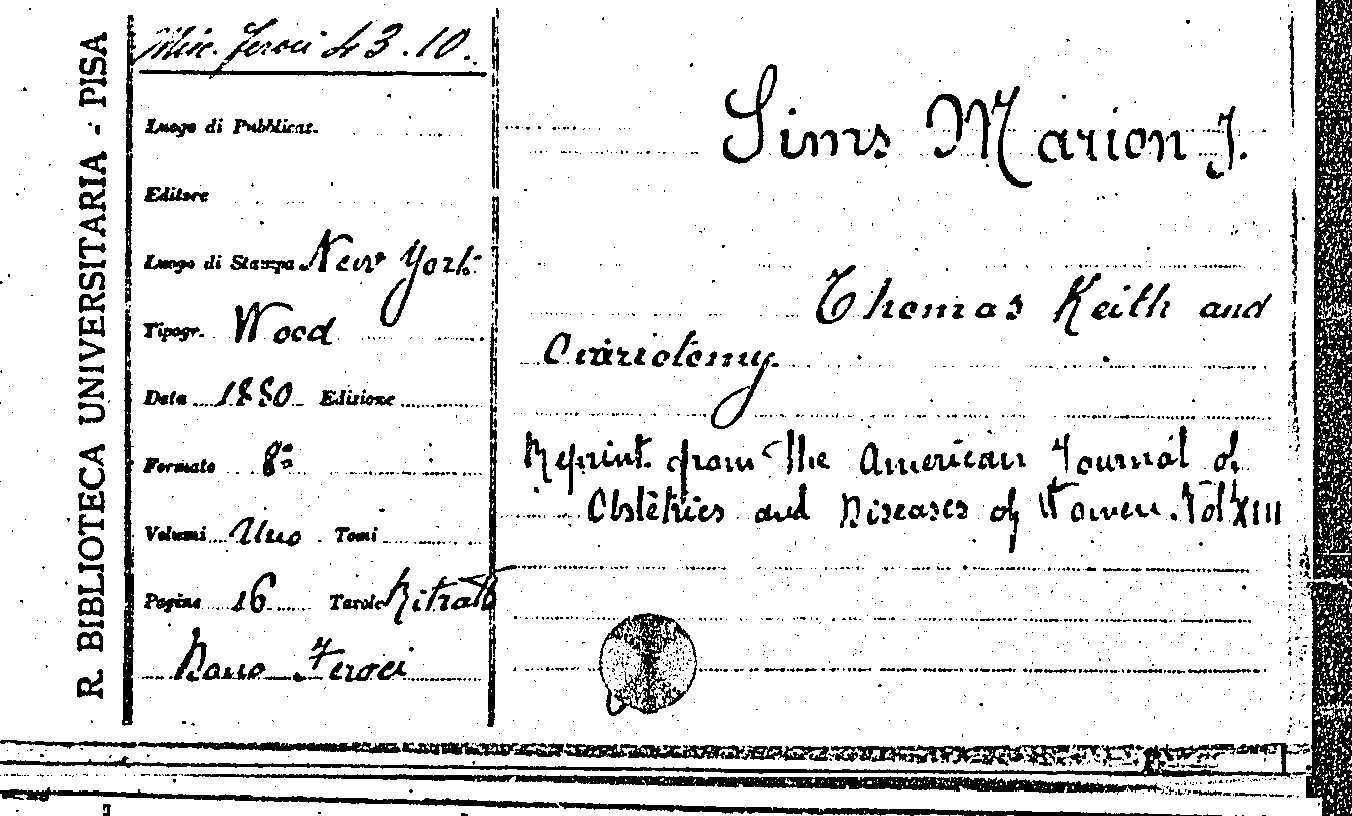 R. BIBLIOTECA UNIVERSITARIA - PISA
Misc. Feroci 43.10.
Luogo di Pubblicaz.
Editore
Luogo di Stampa New York
Tipogr. Wood
Data 1880 Edizione
Formato 8º
Volumi Uno Tomi
Pagine 16 Tavole Ritratto
Dono Feroci
Sims Marion J.
Thomas Keith and
Ovariotomy
Reprint from The American Journal of
Obstetrics and Diseases of Women. Vol XIII